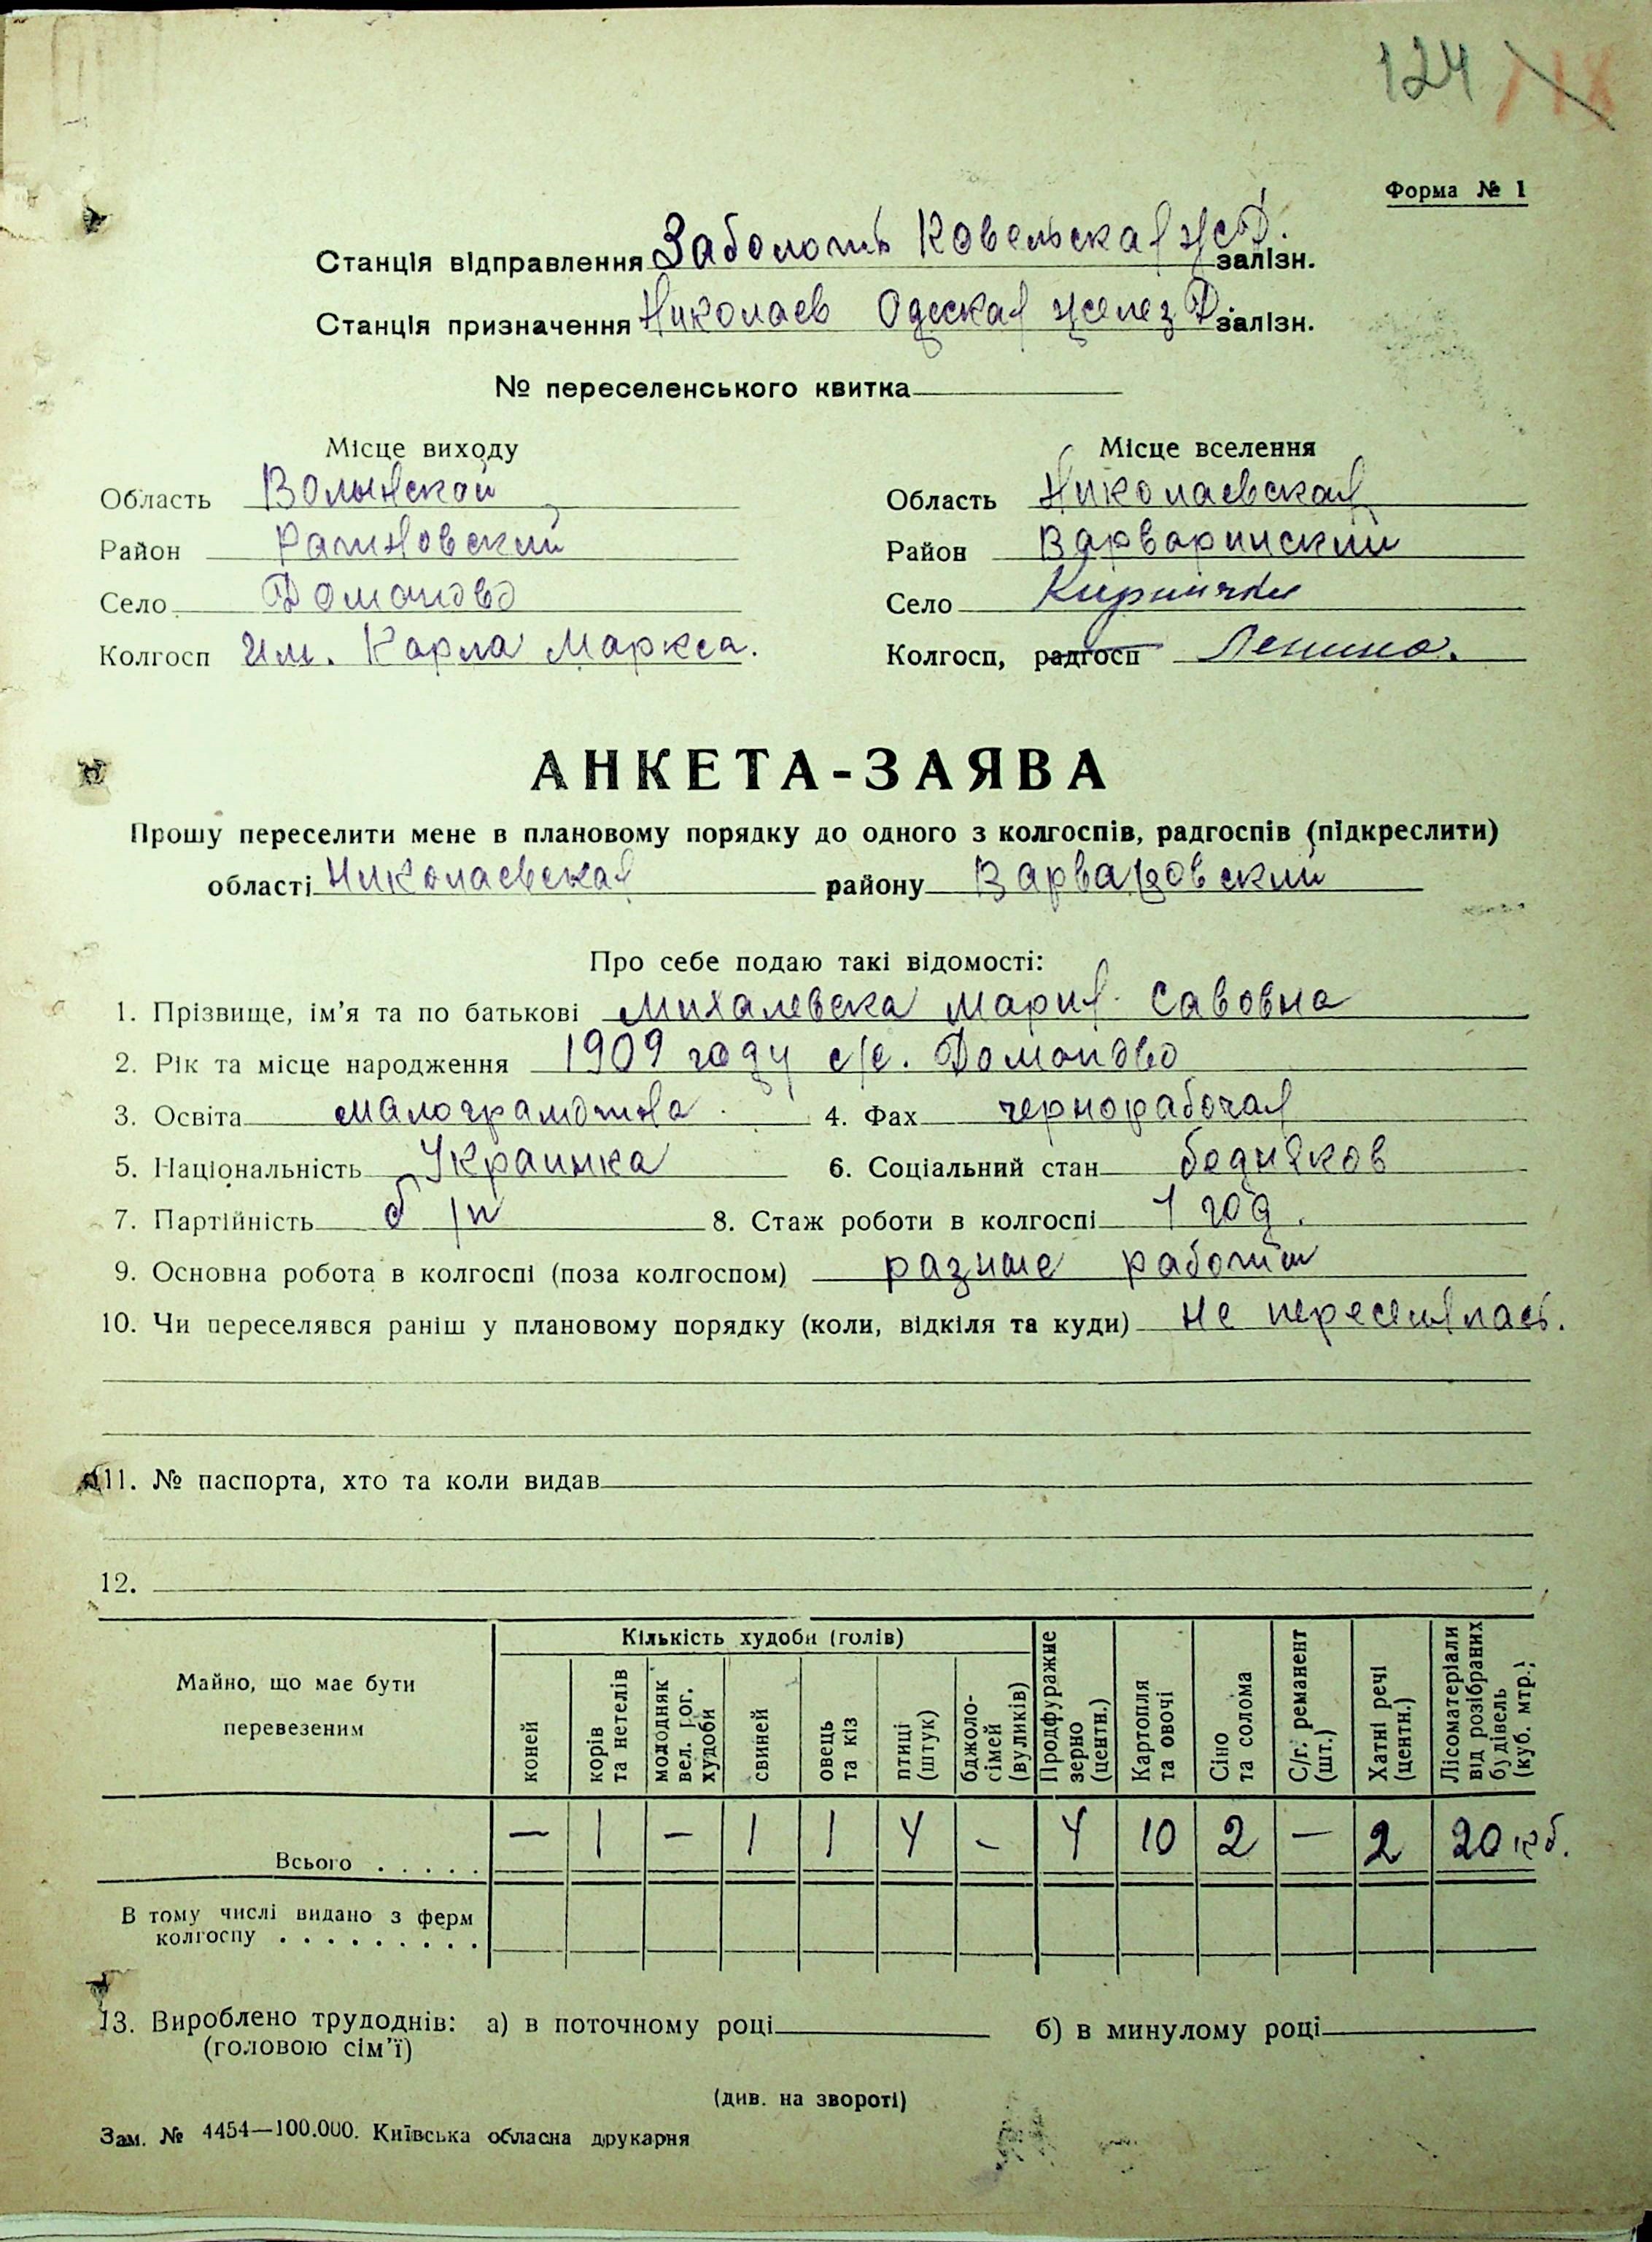 124 118
Форма № 1
Станція відправлення Заболоть Ковельская ж Д. залізн.
Станція призначення Николаев Одеская желез Д. залізн.
№ переселенського квитка
Місце виходу Місце вселення
Область Волынской Область Николаевская
Район Ратновский Район Варваринский
Село Домоново Село Кирпички
Колгосп им. Карла Маркса. Колгосп, радгосп Ленина.
АНКЕТА-ЗАЯВА
Прошу переселити мене в плановому порядку до одного з колгоспів, радгоспів (підкреслити)
області Николаевская району Варваровский
Про себе подаю такі відомості:
1. Прізвище, ім'я та по батькові Михалевска Мария Савовна
2. Рік та місце народження 1909 году с/с. Домоново
3. Освіта малограмотна 4. Фах чернорабочая
5. Національність Украинка 6. Соціальний стан бедняков
7. Партійність б/п 8. Стаж роботи в колгоспі 1 год.
9. Основна робота в колгоспі (поза колгоспом) разные работы
10. Чи переселявся раніш у плановому порядку (коли, відкіля та куди) не переселялась.
11. № паспорта, хто та коли видав
12.
Майно, що має бути перевезеним
Кількість худоби (голів)
коней
корів та нетелів
молодняк вел. рог. худоби
свиней
овець та кіз
птиці (штук)
бджоло-сімей (вуликів)
Продфуражне зерно (центн.)
Картопля та овочі
Сіно та солома
С/г. реманент (шт.)
Хатні речі (центн.)
Лісоматеріали від розібраних будівель (куб. мтр.)
Всього . . . . . — 1 — 1 1 4 - 4 10 2 — 2 20 кб.
В тому числі видано з ферм
колгоспу . . . . . . . . .
13. Вироблено трудоднів: а) в поточному році б) в минулому році
(головою сім'ї)
(див. на звороті)
Зам. № 4454—100.000. Київська обласна друкарня